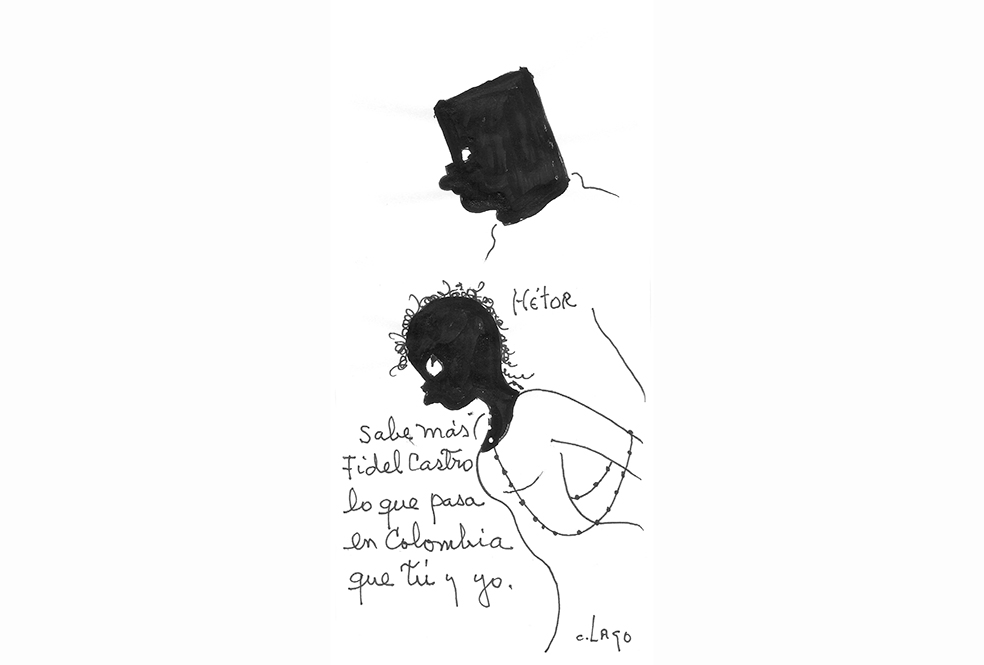 HÉtoR
Sabe más
Fidel Castro
lo que pasa
en Colombia
que tú y yo.
c.LAGO